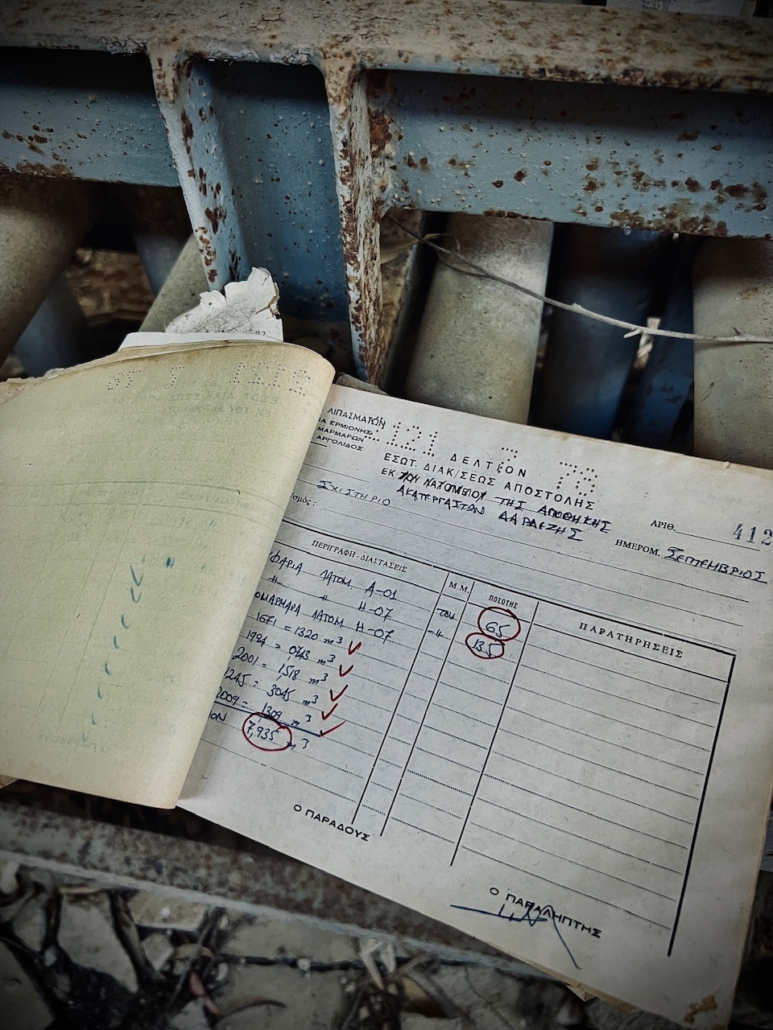 ΛΙΠΑΣΜΑΤΩΝ
ΕΡΜΙΟΝΗΣ
ΜΑΡΜΑΡΩΝ
ΑΡΓΟΛΙΔΟΣ
121 7 78
ΔΕΛΤΙΟΝ
ΕΣΩΤ. ΔΙΑΚ/ΣΕΩΣ ΑΠΟΣΤΟΛΗΣ
ΕΚ ΤΟΥ ΛΑΤΟΜΕΙΟΥ ΤΗΣ ΑΠΟΘΗΚΗΣ
ΑΚΑΤΕΡΓΑΣΤΩΝ ΔΑΡΔΕΖΗΣ
ΑΡΙΘ. 412
ΣΧΙΣΤΗΡΙΟ
ΗΜΕΡΟΜ. ΣΕΠΤΕΜΒΡΙΟΣ
ΠΕΡΙΓΡΑΦΗ - ΔΙΑΣΤΑΣΕΙΣ Μ.Μ. ΠΟΣΟΤΗΣ ΠΑΡΑΤΗΡΗΣΕΙΣ
ΛΑΤΟΜ. Α-01 ΤΟΝ 65
" " Η-07 -"- 135
ΛΑΤΟΜ Η-07
1671 = 1320 m³
1994 = 0743 m³
2001 = 1,518 m³
1245 = 3045 m³
2009 = 1309 m³
7,935 m³
Ο ΠΑΡΑΔΟΥΣ
Ο ΠΑΡΑΛΗΠΤΗΣ